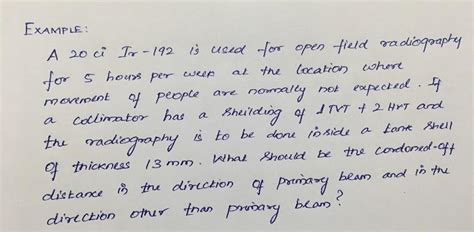 EXAMPLE:
A 20 ci Ir-192 is used for open field radiography
for 5 hours per week at the location where
movement of people are normally not expected. If
a collimator has a sheilding of 1 TVT + 2 HVT and
the radiography is to be done inside a tank shell
of thickness 13 mm. What should be the cordoned-off
distance in the direction of primary beam and in the
direction other than primary beam?